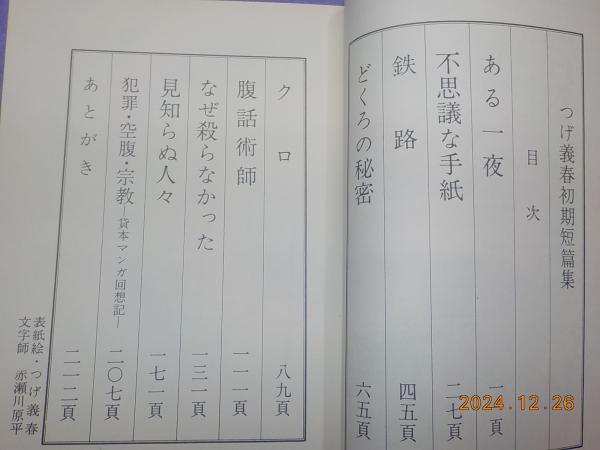 つげ義春初期短篇集
目次
ある一夜 一頁
不思議な手紙 二七頁
鉄路 四五頁
どくろの秘密 六五頁
クロ 八九頁
腹話術師 一一一頁
なぜ殺らなかった 一三一頁
見知らぬ人々 一七一頁
犯罪・空腹・宗教―貸本マンガ回想記― 二〇七頁
あとがき 二一二頁
表紙絵・つげ義春
文字師 赤瀬川原平
2024.12.26